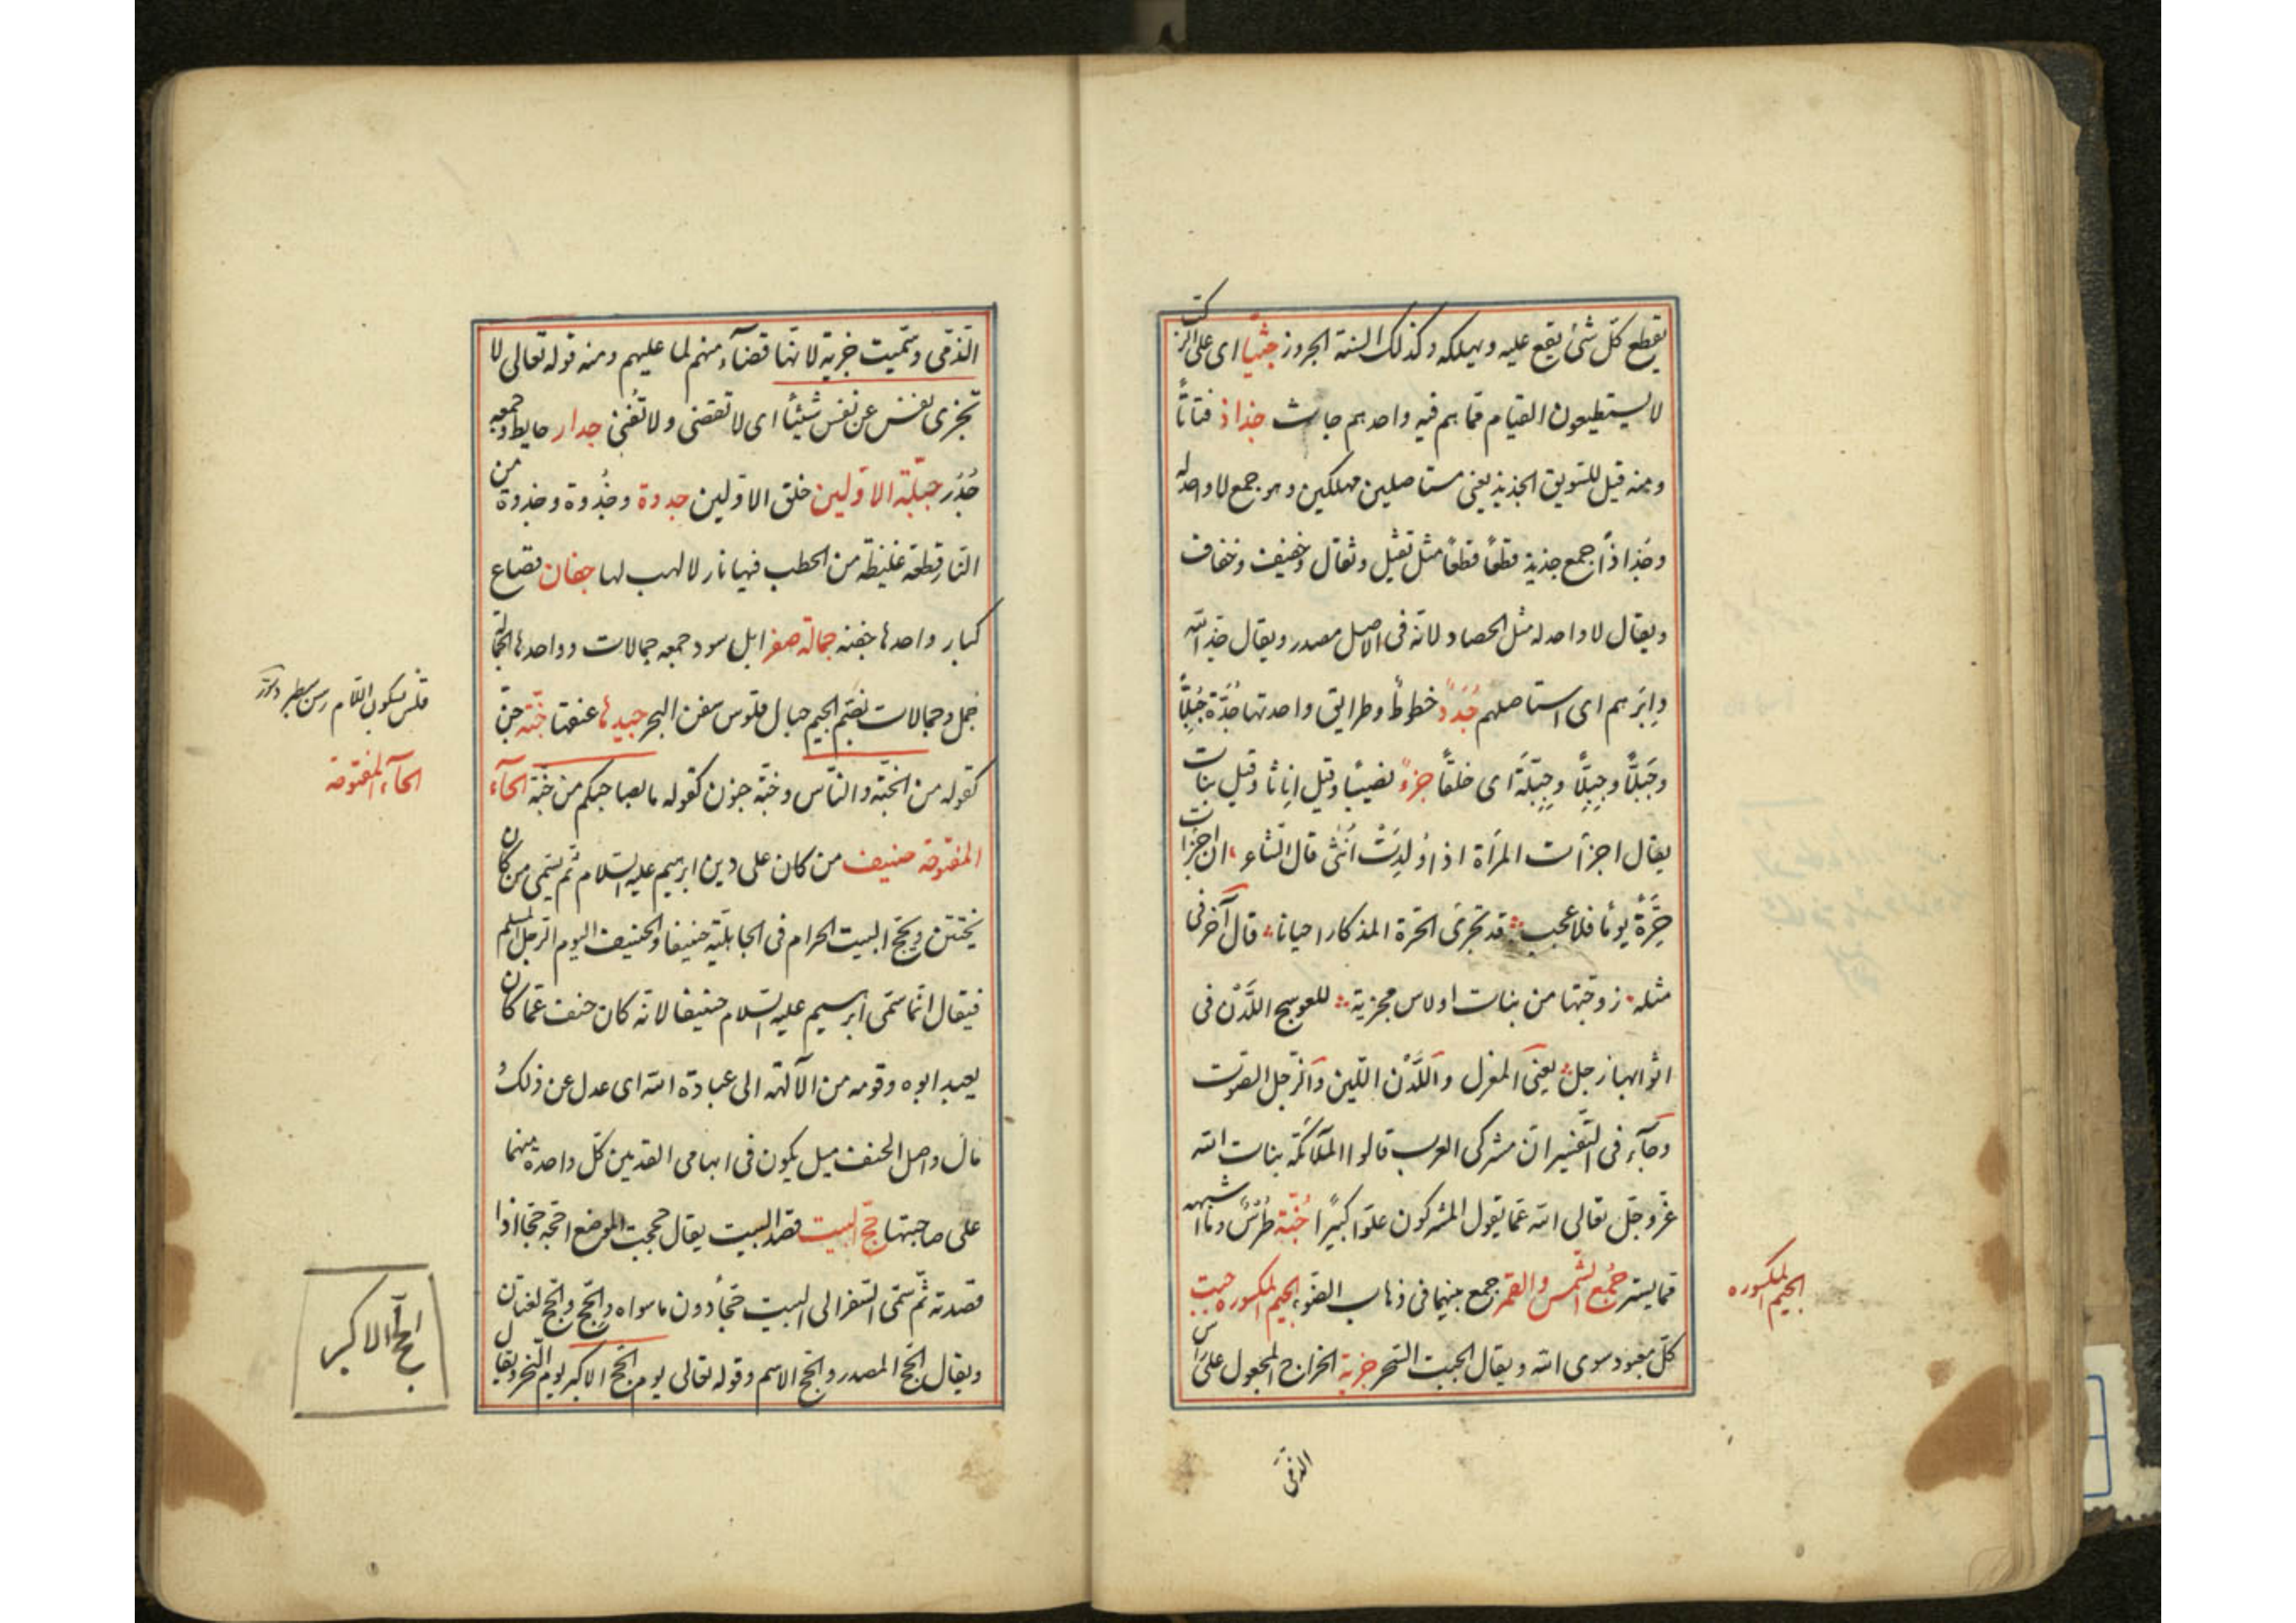 يقطع كلّ شئ يقع عليه ويهلكه وكذلك السنة الجروز جثيا اى على الركب
لا يستطيعون القيام مما هم فيه واحدهم جاث جذاذ فتاتًا
ومنه قيل للسويق الجذيذ يعنى مستاصلين مهلكين وهو جمع لا واحد له
وجُذاذًا جمع جذيذ قطعًا قطعًا مثل ثقيل وثقال وخفيف وخفاف
ويقال لا واحد له مثل الحصاد لانه فى الاصل مصدر ويقال جذ الله
دابرهم اى استاصلهم جُدَدٌ خطوط وطرايق واحدتها جُدّة جُبُلًّا
وجَبَلًّا وجِبِلًّا وجِبِلّة اى خلقًا جزءً نصيبًا وقيل اناثا وقيل بنات
يقال اجزأت المرأة اذا ولدَتْ أنثى قال الشاعر ان اجزأت
حرّةٌ يومًا فلا عجب قد تجزى الحرّة المذكار احيانا قال آخر فى
مثله زوجتها من بنات اولاس مجزية للعوسج اللَّدْن فى
اثوابها زجل يعنى المغزل واللَّدْن اللّين والزجل الصوت
وجآء فى التفسير انّ مشركى العرب قالوا الملآئكة بنات الله
عزّ وجلّ تعالى الله عما يقول المشركون علوّا كبيرًا جُنّة تُرْسٌ وما اشبهه
مما يستر جُمع الشّمس والقمر جمع بينهما فى ذهاب الضوء الجيم المكسوره جبت
كلّ معبود سوى الله ويقال الجبت السحر جزية الخراج المجعول على راس
الجيم المكسوره
الذمّى
الذمّى وسمّيت جزية لانها قضآء منهم لما عليهم ومنه قوله تعالى لا
تجزى نفس عن نفس شيئًا اى لا تقضى ولا تُغنى جدار حايط وجمعه
جُدُر جبلّة الاوّلين خلق الاوّلين جدوة وجُذوة وجذوة من
النار قطعة غليظة من الحطب فيها نار لا لهب لها جفان قصاع
كبار واحدها جفنه جمالة صفر ابل سود جمعه جمالات وواحدها الجمالة
جمل وجمالات بضمّ الجيم حبال قلوس سفن البحر جيدها عنقها جنّة جنّ
كقوله من الجنّة والناس وجنّة جنون كقوله ما بصاحبكم من جنّة الحآء
المفتوحة حنيف من كان على دين ابرهيم عليه السلام ثم يسمّى من كان
يختتن ويحجّ البيت الحرام فى الجاهلية حنيفا والحنيف اليوم الرجل المسلم
فيقال انّما سمّى ابرهيم عليه السلام حنيفا لانه كان حنف عمّا كان
يعبد ابوه وقومه من الآلهة الى عبادة الله اى عدل عن ذلك و
مال واصل الحنف ميل يكون فى ابهامى القدمين كلّ واحدة منهما
على صاحبتها حجّ البيت قصد البيت يقال حججت الموضع احجّه حجّا اذا
قصدته ثم سمّى السفر الى البيت حجّاً دون ما سواه والحَجّ والحِجّ لغتان
ويقال الحَجّ المصدر والحِجّ الاسم وقوله تعالى يوم الحجّ الاكبر يوم النحر ويقال
قلس بسكون اللام رسن سطبر
الحآء المفتوحة
الحجّ الاكبر